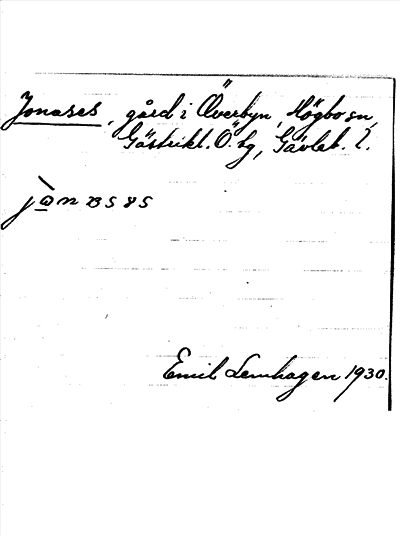 Jonases, gård i Överbyn, Högbo sn,
Gästrikl. Ö. tg, Gävleb. l.
j
Emil Lemhagen 1930.